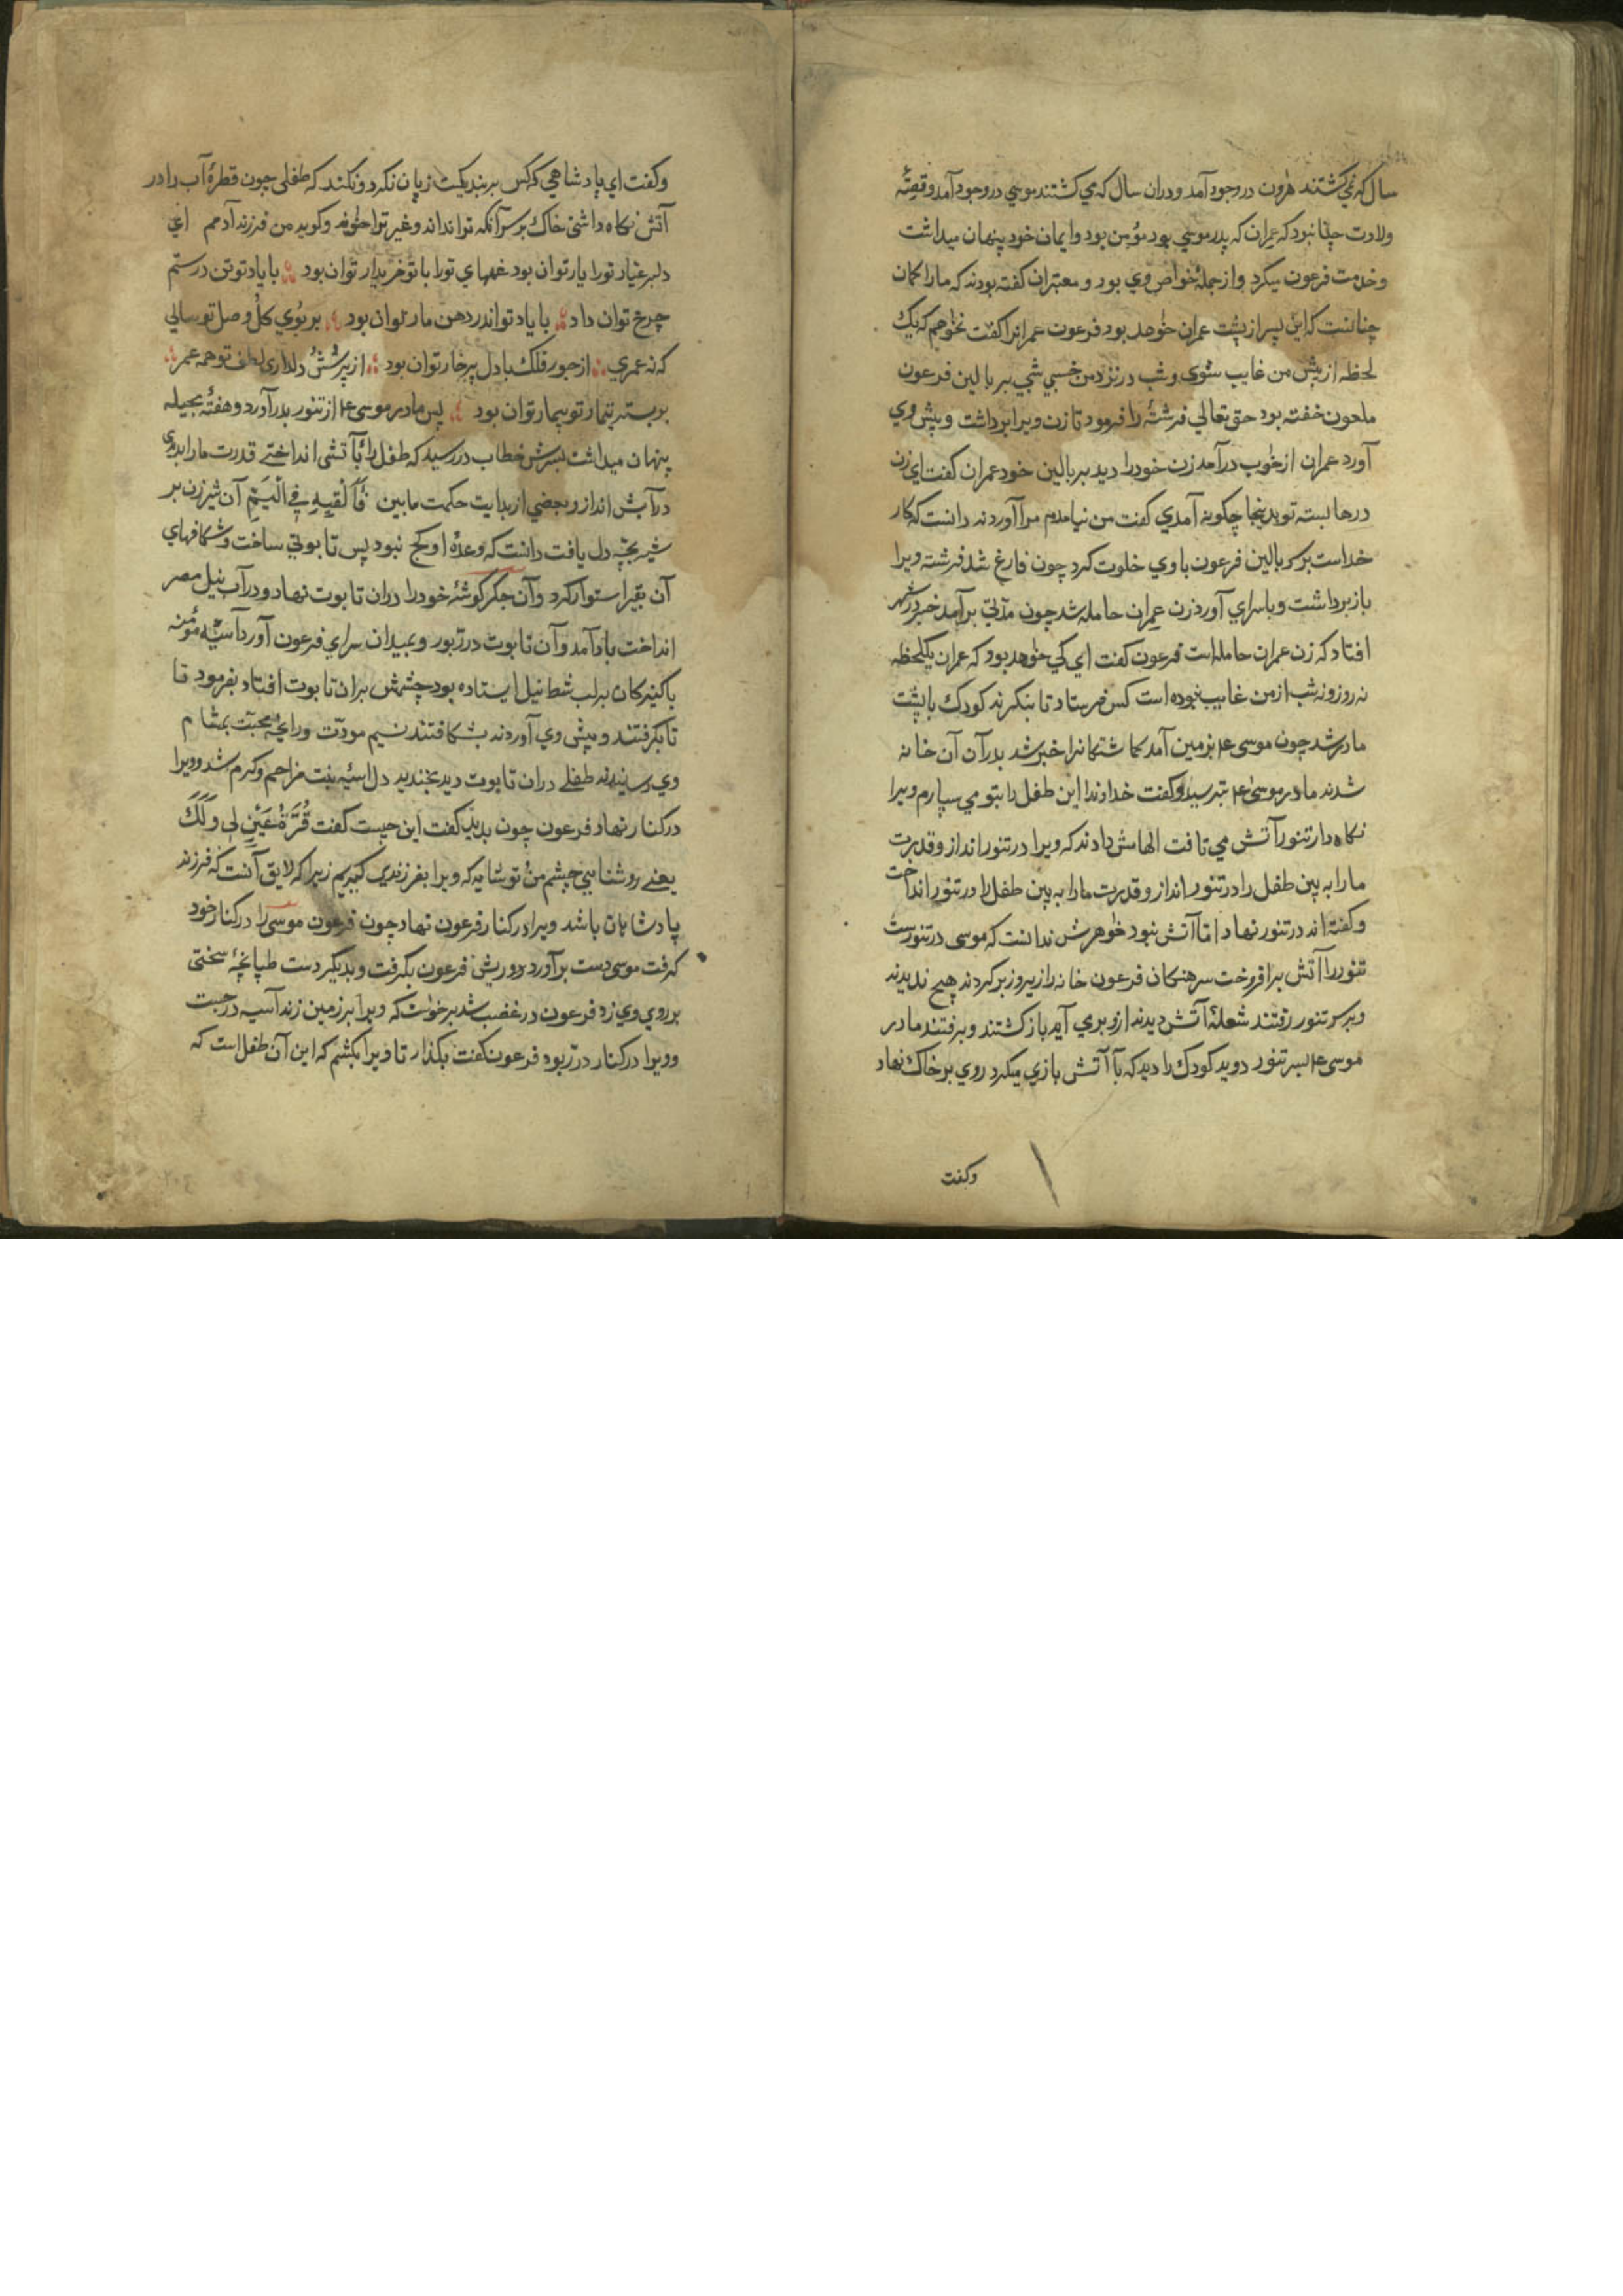 سال که نمی کشتند هرون در وجود آمد و دران سال که می کشتند موسی در وجود آمد و قصّهٔ
ولادت چنان بود که عمران که پدر موسی بود مؤمن بود و ایمان خود پنهان میداشت
و خدمت فرعون میکرد و از جملهٔ خواص وی بود و معبران کفته بودند که ما را کمان
چنانست که این پسر از پشت عمران خواهد بود فرعون عمرانرا کفت نخواهم که یک
لحظه از پیش من غایب شوی و شب در نزد من خسبی شبی بر بالین فرعون
ملعون خفته بود حق تعالی فرشتهٔ را فرمود تا زن ویرا برداشت و پیش وی
آورد عمران از خواب درآمد زن خود را دید بر بالین خود عمران کفت ای زن
درها بسته تو بدینجا چکونه آمدی کفت من نیامدم مرا آوردند دانست که کار
خداست بر سر بالین فرعون با وی خلوت کرد چون فارغ شد فرشته ویرا
باز برداشت و با سرای آورد زن عمران حامله شد چون مدتی برآمد خبر در شهر
افتاد که زن عمران حامله است فرعون کفت ای کی خواهد بود که عمران یکلحظه
نه روز و نه شب از من غایب نبوده است کس فرستاد تا بنکرند کودک با پشت
مادر شد چون موسی ع م بزمین آمد کماشتکانرا خبر شد بدر آن خانه
شدند مادر موسی ع م بترسید و کفت خداوندا این طفل را بتو می سپارم ویرا
نکاه دار تنور آتش می تافت الهامش دادند که ویرا در تنور انداز و قدرت
ما را به بین طفل را در تنور انداز و قدرت ما را به بین طفل را در تنور انداخت
و کفته اند در تنور نهاد اما آتش نبود خواهرش ندانست که موسی در تنورست
تنور را آتش برافروخت سرهنکان فرعون خانه را زیر و زبر کردند هیچ ندیدند
و بر سر تنور رفتند شعلهٔ آتش دیدند ازو برمی آید باز کشتند و برفتند مادر
موسی ع م بسر تنور دوید کودک را دید که با آتش بازی میکرد روی بر خاک نهاد
وکفت
و کفت ای پادشاهی که کس بر بندیکیت زیان نکرد و نکند که طفلی چون قطرهٔ آب را در
آتش نکاه داشتی خاک بر سر آنکه ترا نداند و غیر ترا خواند و کوید من فرزند آدمم ای
دلبر عیار تو را یار توان بود غمهای تو را با تو خریدار توان بود با یاد تو تن در ستم
چرخ توان داد با یاد تو اندر دهن مار توان بود بر بوی کل وصل تو سالی
که نه عمری از جور فلک با دل پر خار توان بود از پرسش و دلداری لطف تو همه عمر
بر بستر تیمار تو بیمار توان بود پس مادر موسی ع م از تنور بدر آورد و هفتهٔ بحیله
پنهان میداشت بسرش خطاب در رسید که طفل را بآتش انداختی قدرت ما را بدیدی
در آبش انداز و بعضی از بدایت حکمت ما بین فَأَلْقِیهِ فِی الْیَمِّ آن شیر زن بر
شیر بچه دل یافت دانست که وعدهٔ او کج نبود پس تابوتی ساخت و شکافهای
آن بقیر استوار کرد و آن جکر کوشهٔ خود را دران تابوت نهاد و در آب نیل مصر
انداخت باد آمد و آن تابوت در ربود و بمیدان سرای فرعون آورد آسیهٔ مؤمنه
با کنیزکان بر لب شط نیل ایستاده بود چشمش بران تابوت افتاد بفرمود تا
تا بکرفتند و پیش وی آوردند بشکافتند نسیم مودّت و رایحهٔ محبّت بمشام
وی رسانیدند طفلی دران تابوت دید بخندید دل آسیهٔ بنت مزاحم و کرم شد و ویرا
در کنار نهاد فرعون چون بدید کفت این چیست کفت قُرَّةُ عَیْنٍ لِی وَلَکَ
یعنی روشنایی چشم من و تو شاید که ویرا بفرزندی کیریم زیرا که لایق آنست که فرزند
پادشاهان باشد ویرا در کنار فرعون نهاد چون فرعون موسی را در کنار خود
کرفت موسی دست برآورد و ریش فرعون بکرفت و بدیکر دست طپانچهٔ سختی
بر روی وی زد فرعون در غضب شد برخواست که ویرا بر زمین زند آسیه در جست
و ویرا در کنار در ربود فرعون کفت بکذار تا ویرا بکشم که این آن طفل است که